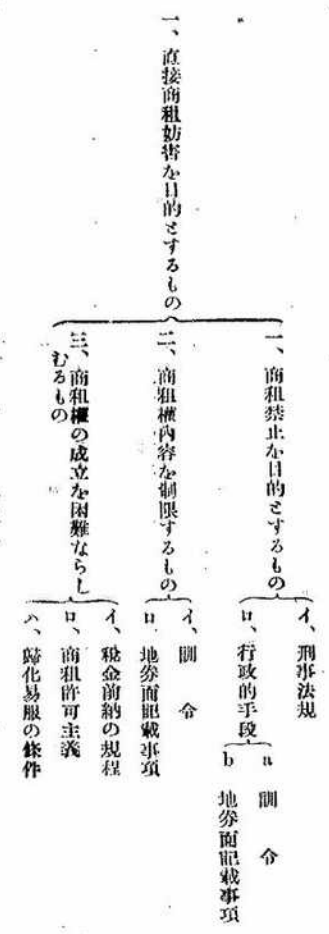 一、直接商租妨害を目的とするもの
一、商租禁止を目的とするもの
イ、刑事法規
ロ、行政的手段
a 訓令
b 地券面記載事項
二、商租權內容を制限するもの
イ、訓令
ロ、地券面記載事項
三、商租權の成立を困難ならし
むるもの
イ、稅金前納の規程
ロ、商租許可主義
ハ、歸化易服の條件